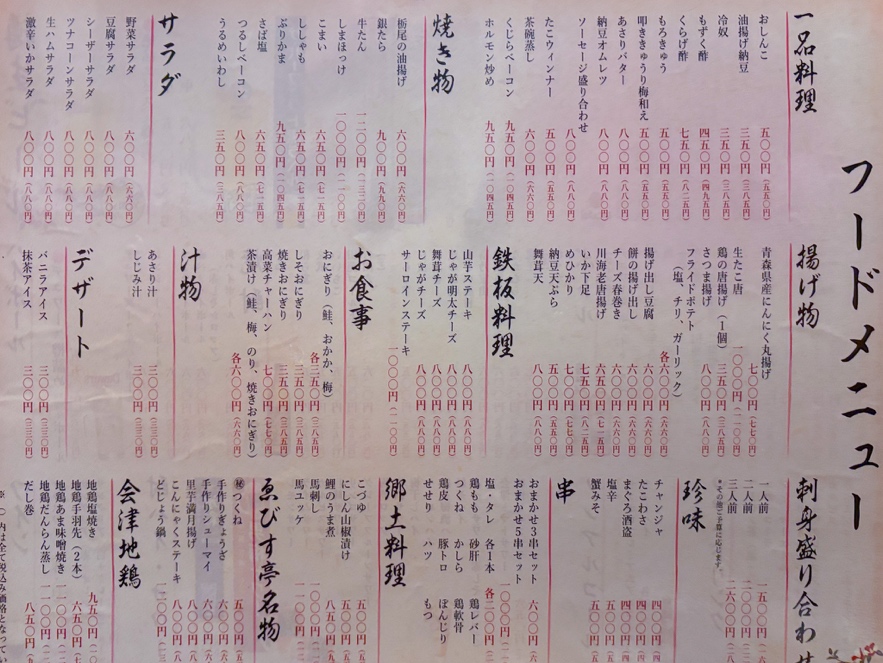 フードメニュー
一品料理
おしんこ 五〇〇円(五五〇円)
油揚げ納豆 三五〇円(三八五円)
冷奴 三五〇円(三八五円)
もずく酢 四五〇円(四九五円)
くらげ酢 七五〇円(八二五円)
もろきゅう 五〇〇円(五五〇円)
叩ききゅうり梅和え 五〇〇円(五五〇円)
あさりバター 八〇〇円(八八〇円)
納豆オムレツ 八〇〇円(八八〇円)
ソーセージ盛り合わせ 八〇〇円(八八〇円)
たこウィンナー 五〇〇円(五五〇円)
茶碗蒸し 六〇〇円(六六〇円)
くじらベーコン 九五〇円(一〇四五円)
ホルモン炒め 九五〇円(一〇四五円)
焼き物
栃尾の油揚げ 六〇〇円(六六〇円)
銀たら 九〇〇円(九九〇円)
牛たん 一二〇〇円(一三二〇円)
しまほっけ 一〇〇〇円(一一〇〇円)
こまい 六五〇円(七一五円)
ししゃも 六五〇円(七一五円)
ぶりかま 九五〇円(一〇四五円)
さば塩 六五〇円(七一五円)
つるしベーコン 八〇〇円(八八〇円)
うるめいわし 三五〇円(三八五円)
サラダ
野菜サラダ 六〇〇円(六六〇円)
豆腐サラダ 八〇〇円(八八〇円)
シーザーサラダ 八〇〇円(八八〇円)
ツナコーンサラダ 八〇〇円(八八〇円)
生ハムサラダ 八〇〇円(八八〇円)
激辛いかサラダ 八〇〇円(八八〇円)
揚げ物
青森県産にんにく丸揚げ 七〇〇円(七七〇円)
生たこ唐 一〇〇〇円(一一〇〇円)
鶏の唐揚げ(1個)
さつま揚げ 八〇〇円(八八〇円)
フライドポテト
(塩、チリ、ガーリック) 各六〇〇円(六六〇円)
揚げ出し豆腐 六〇〇円(六六〇円)
餅の揚げ出し 六〇〇円(六六〇円)
チーズ春巻き 六〇〇円(六六〇円)
川海老唐揚げ 六五〇円(七一五円)
いか下足 七五〇円(八二五円)
めひかり 八〇〇円(八八〇円)
納豆天ぷら 五〇〇円(五五〇円)
舞茸天 八〇〇円(八八〇円)
鉄板料理
山芋ステーキ 八〇〇円(八八〇円)
じゃが明太チーズ 八〇〇円(八八〇円)
舞茸チーズ 八〇〇円(八八〇円)
じゃがチーズ 八〇〇円(八八〇円)
サーロインステーキ 一〇〇〇円(一一〇〇円)
お食事
おにぎり(鮭、おかか、梅) 各三五〇円(三八五円)
しそおにぎり 三五〇円(三八五円)
焼きおにぎり 三五〇円(三八五円)
高菜チャーハン 七〇〇円(七七〇円)
茶漬け(鮭、梅、のり、焼きおにぎり) 各六〇〇円(六六〇円)
汁物
あさり汁 三〇〇円(三三〇円)
しじみ汁 三〇〇円(三三〇円)
デザート
バニラアイス 三〇〇円(三三〇円)
抹茶アイス 三〇〇円(三三〇円)
刺身盛り合わせ
一人前 一五〇〇円
二人前 二〇〇〇円
三人前 二六〇〇円
*その他ご予算に応じます。
珍味
チャンジャ 四〇〇円
たこわさ 四〇〇円
まぐろ酒盗 四〇〇円
塩辛 五〇〇円
蟹みそ 五〇〇円
串
おまかせ3串セット 六〇〇円
おまかせ5串セット 一〇〇〇円
塩・タレ 各1本 各二〇〇円
鶏もも 砂肝 鶏レバー
つくね かしら 鶏軟骨
鶏皮 豚トロ ぼんじり
せせり ハツ もつ
郷土料理
こづゆ 五〇〇円
にしん山椒漬け 五〇〇円
鯉のうま煮 八五〇円
馬刺し 一〇〇〇円
馬ユッケ 一〇〇〇円
ゑびす亭名物
㊙つくね 五〇〇円
手作りぎょうざ 六〇〇円
手作りシューマイ 六〇〇円
里芋満月揚げ 八〇〇円
こんにゃくステーキ 八〇〇円
どじょう鍋 一二〇〇円
会津地鶏
地鶏塩焼き 九五〇円
地鶏手羽先(2本) 六五〇円
地鶏あま味噌焼き 一一〇〇円
地鶏だんらん蒸し 一一〇〇円
だし巻 八五〇円
※( )内は全て税込み価格となってい